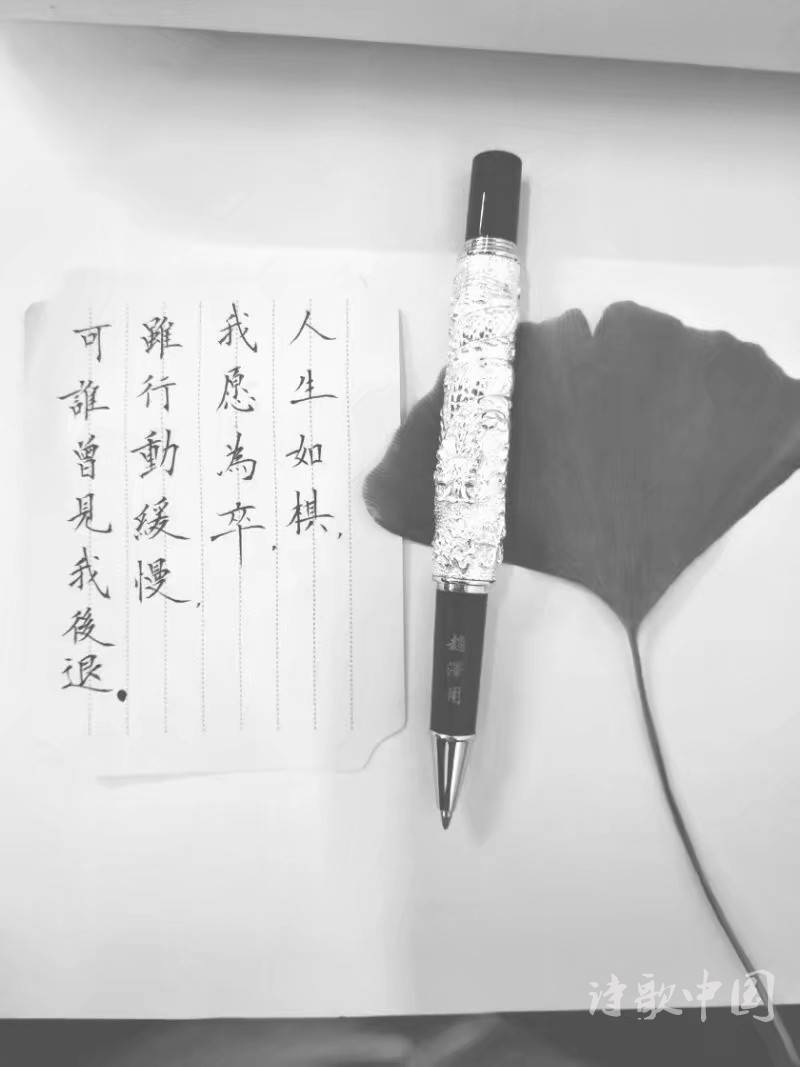 人生如棋,
我愿為卒,
雖行動緩慢,
可誰曾見我後退.
趙澤用
诗歌中国